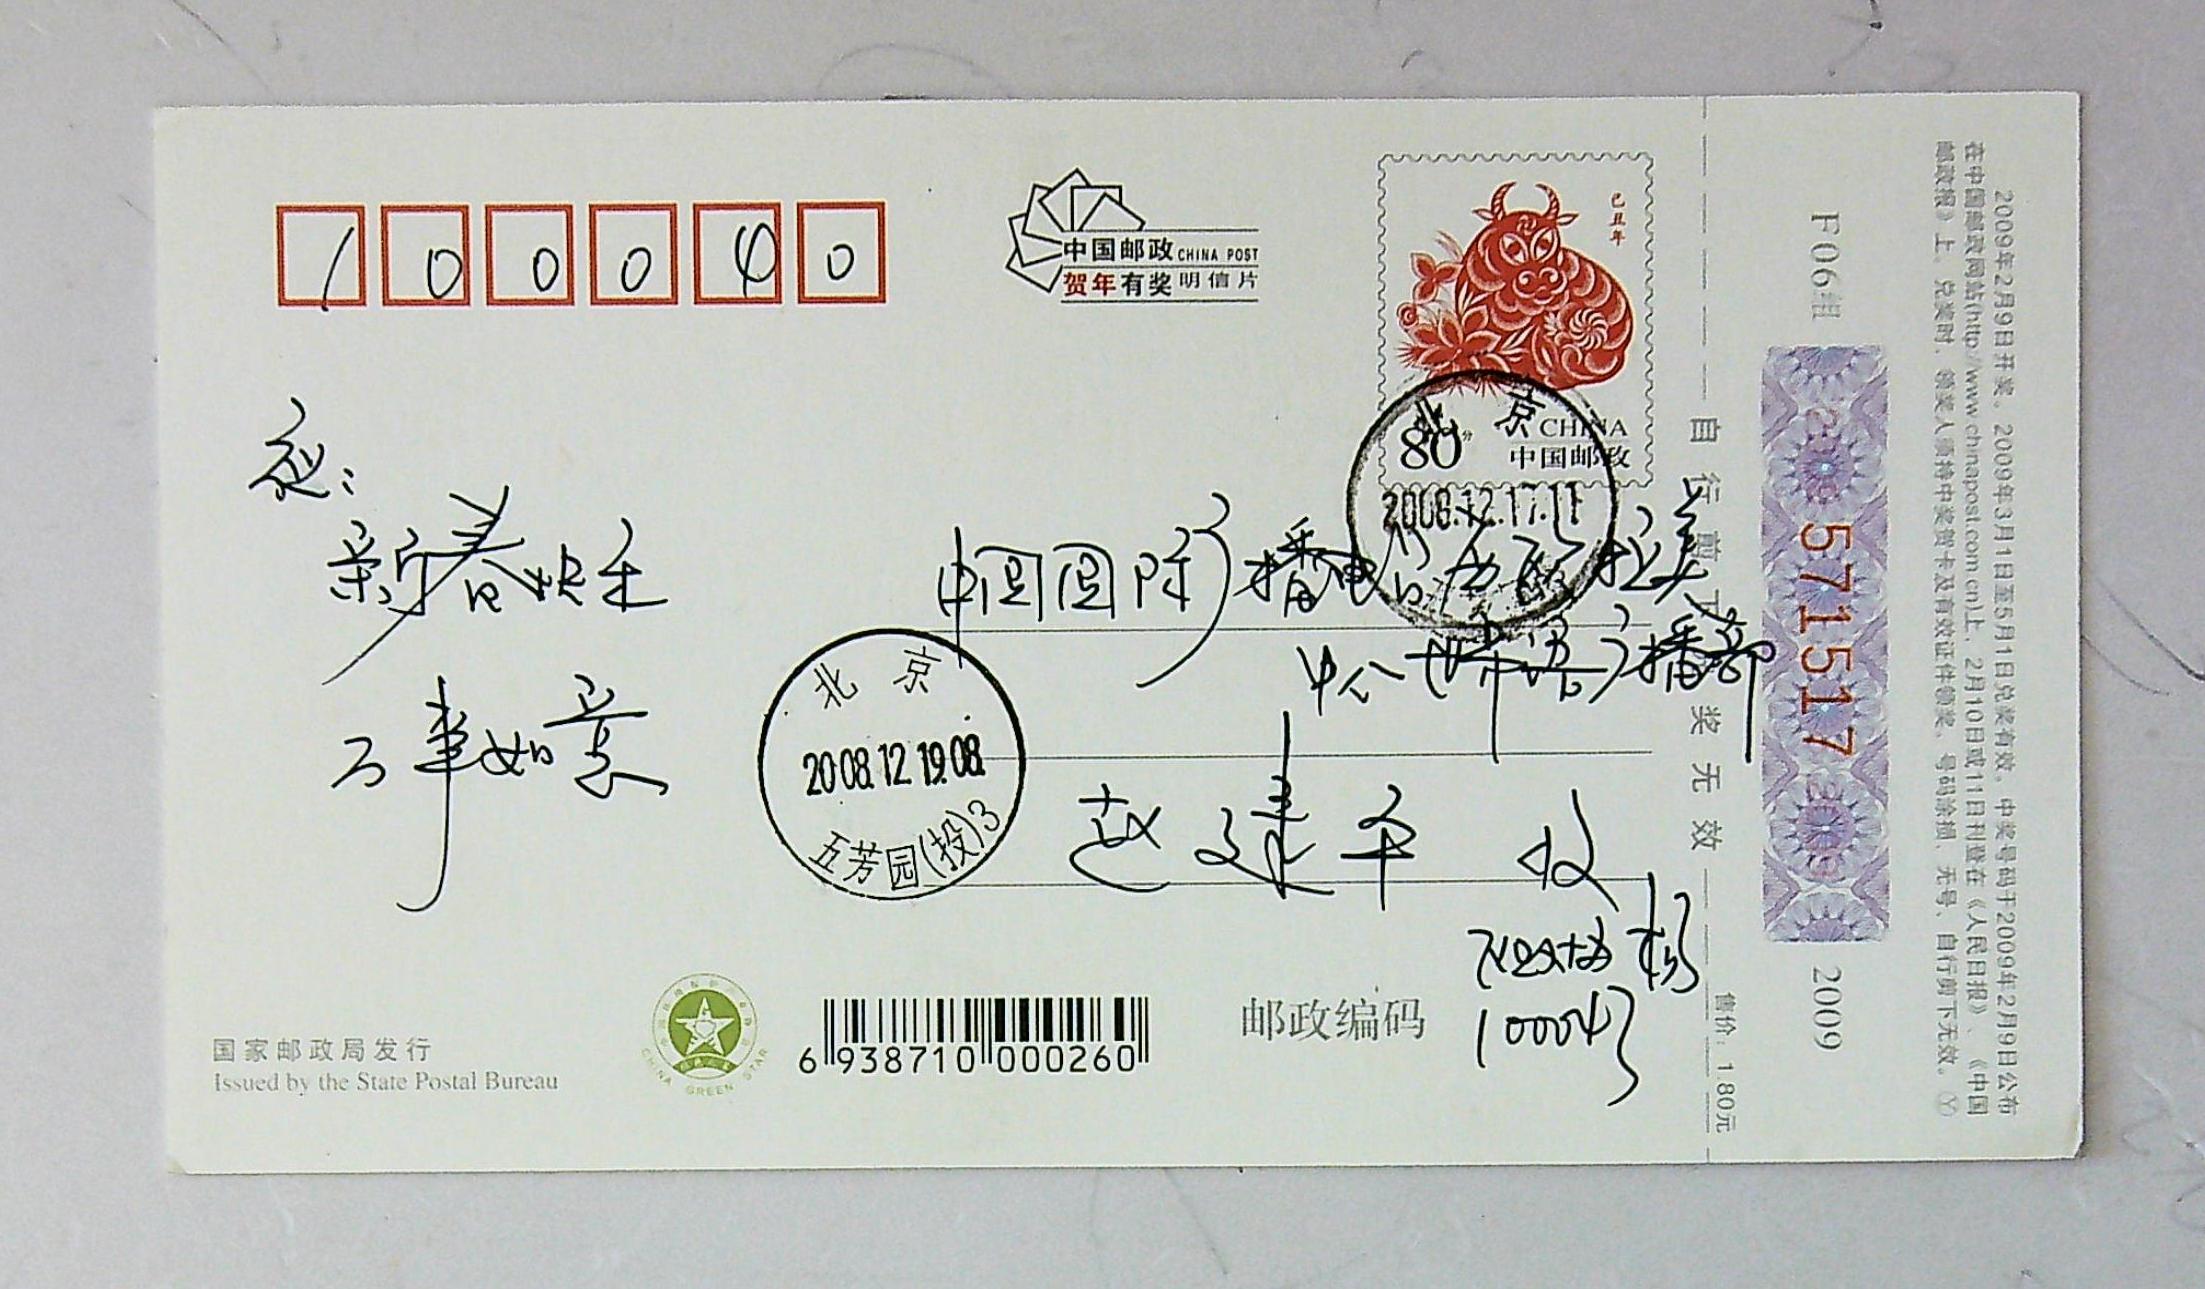 100040
中国邮政 CHINA POST
贺年有奖 明信片
己丑年
80分
CHINA
中国邮政
北京
2008.12.17.11
祝:
新春快乐
万事如意
中国国际广播电台 西 拉美
中心 世 语广播部
赵建平 收
北京
2008.12.19.08
五芳园(投)3
杨
100043
邮政编码
6 938710 000260
CHINA GREEN STAR
国家邮政局发行
Issued by the State Postal Bureau
自行剪下 奖无效
售价:1.80元
F06组
571517
2009
2009年2月9日开奖。2009年3月1日至5月1日兑奖有效。中奖号码于2009年2月9日公布
在中国邮政网站(http://www.chinapost.com.cn)上、2月10日或11日刊登在《人民日报》、《中国
邮政报》上。兑奖时,领奖人须持中奖贺卡及有效证件领奖。号码涂损、无号、自行剪下无效。